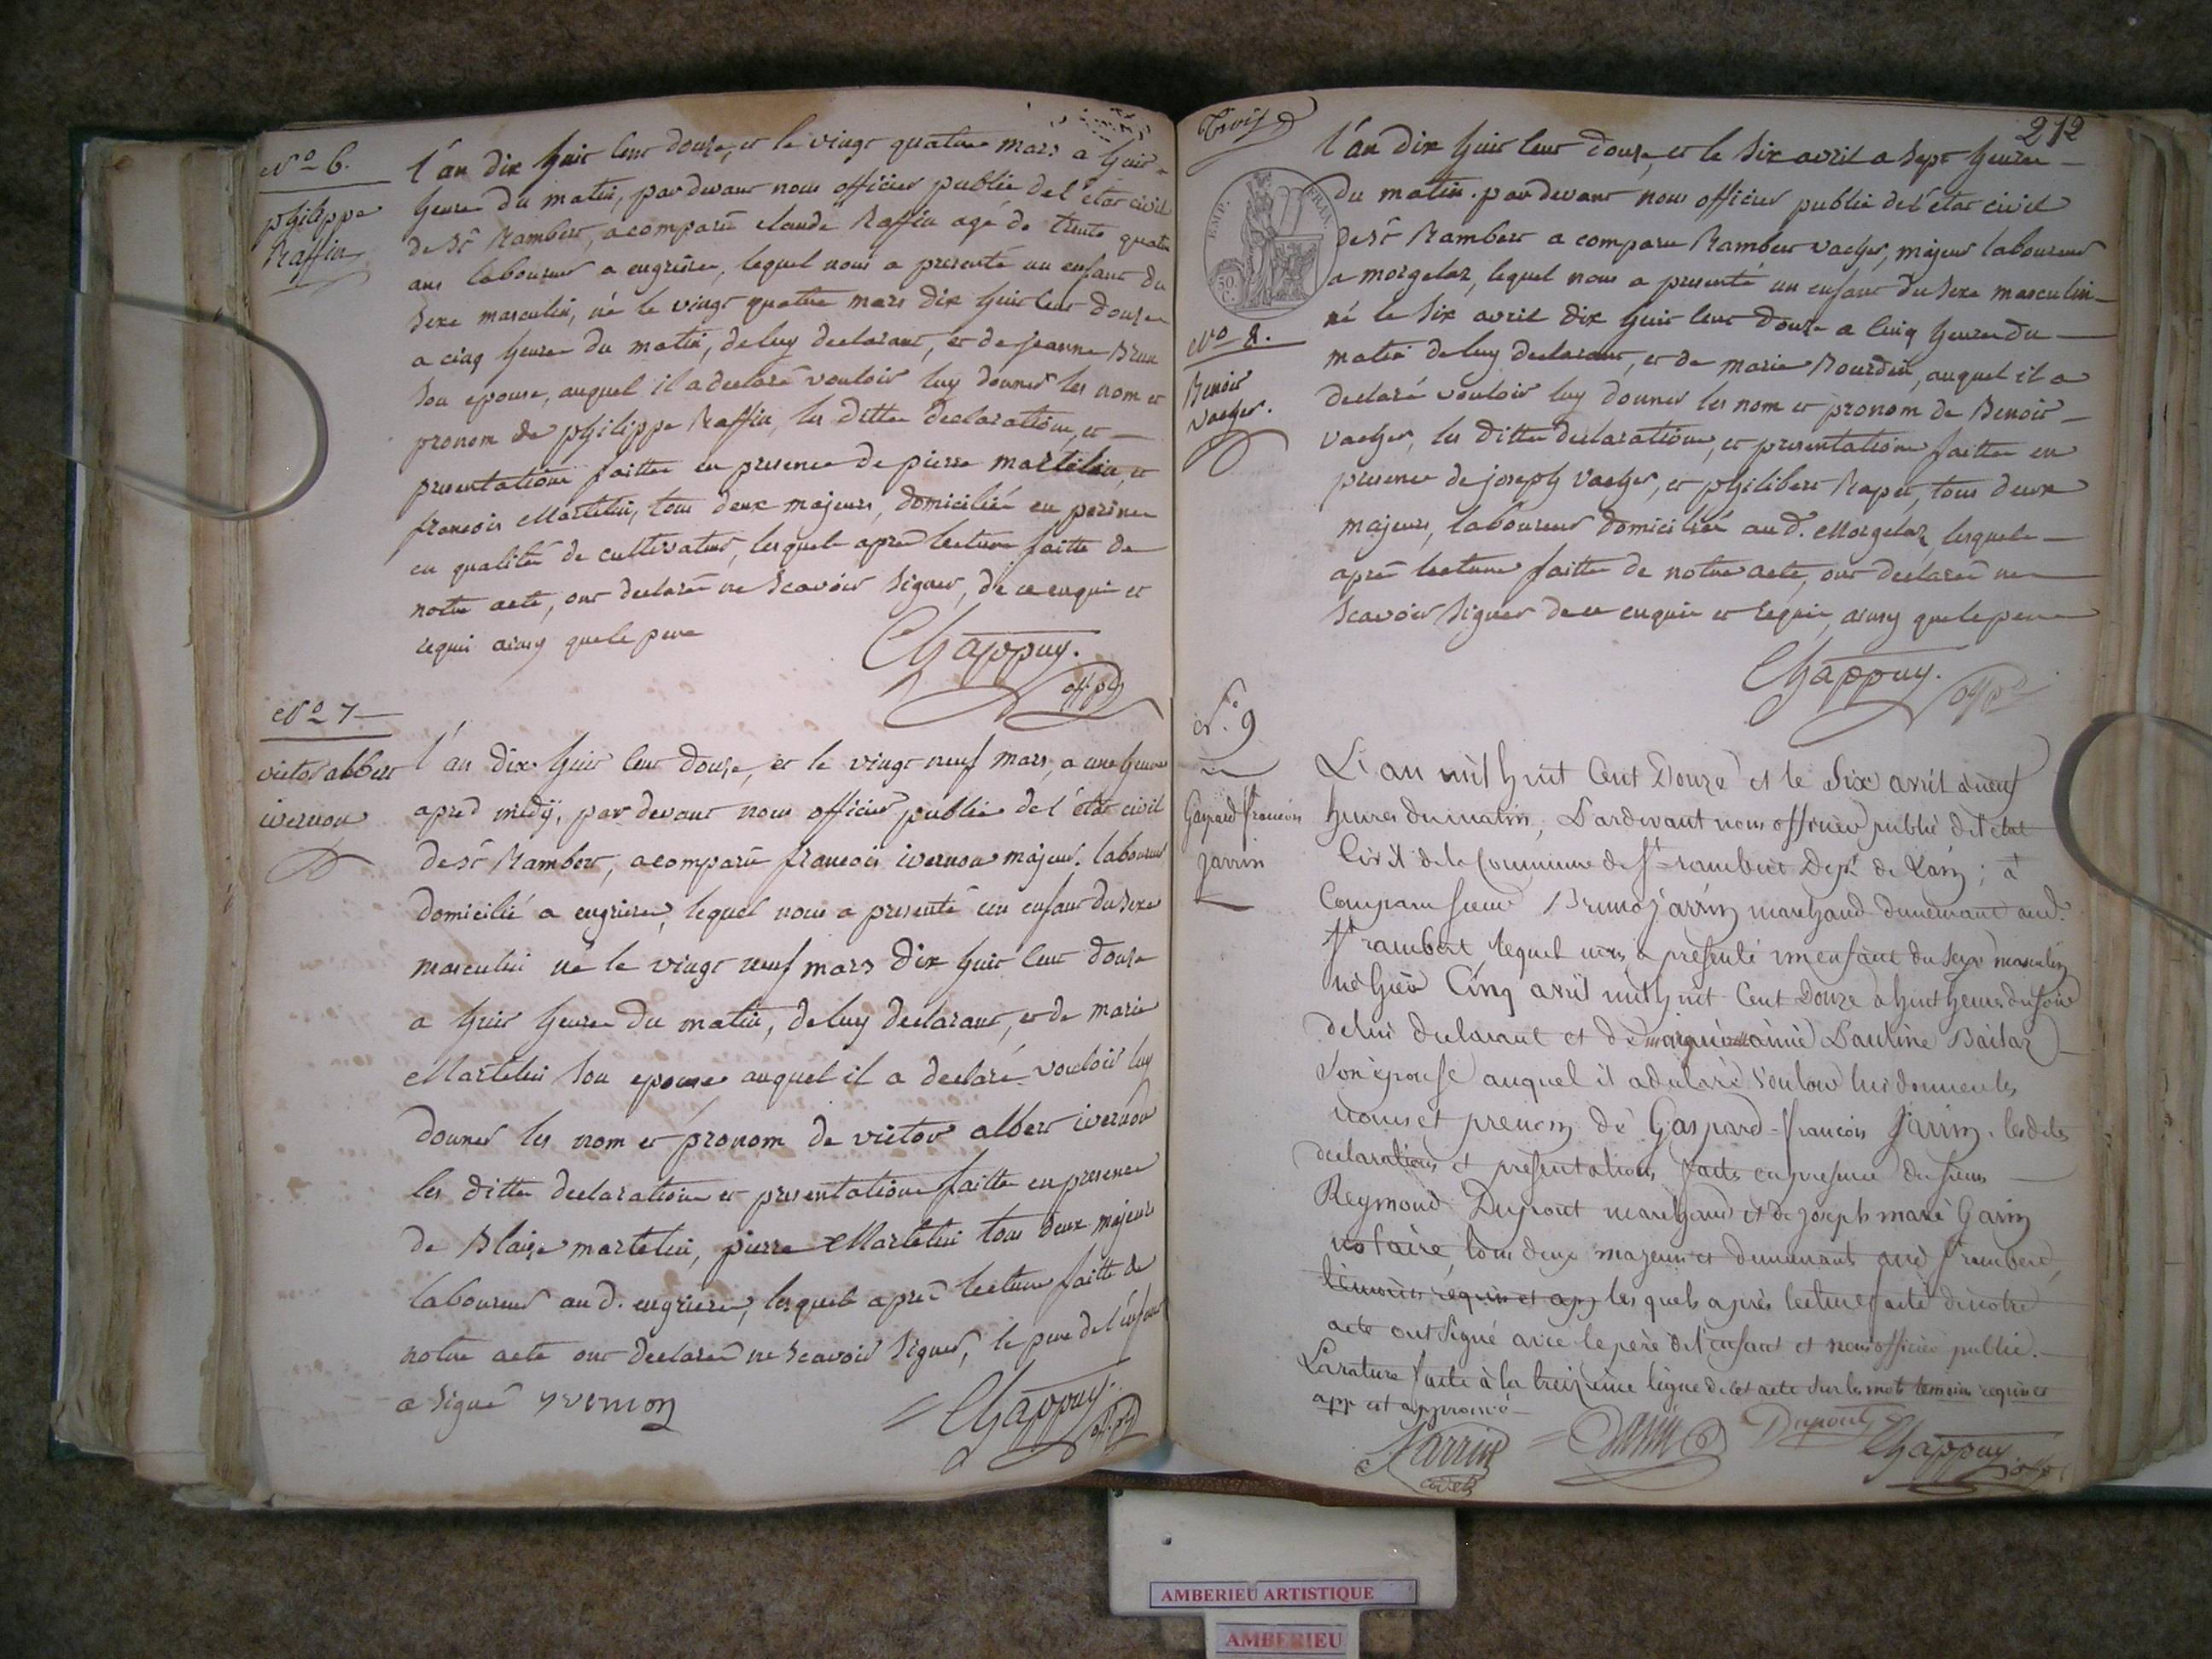 N° 6.
philippe
Raffin
l'an dix huit cent douze, et le vingt quatre mars a huit
heure du matin, par devant nous officier public de l'état civil
de St Rambert, a comparu claude Raffin agé de trente quatre
ans laboureur a engriere, lequel nous a presenté un enfant du
sexe masculin, né le vingt quatre mars dix huit cent douze
a cinq heure du matin, de luy declarant, et de jeanne Brun
son epouse, auquel il a declaré vouloir luy donner les nom et
pronom de philippe Raffin, les ditte declaration, et
presentation faitte en presence de pierre martelin, et
francois Martelin, tous deux majeurs, domicilié en
en qualité de cultivateur, lesquels apres lecture faitte de
notre acte, ont declaré ne scavoir signer, de ce enquis et
requis ainsy que le pere
Chappuy.
off. p.
N° 7
victor albert
ivernon
l'an dix huit cent douze, et le vingt neuf mars, a une heure
apres midy, par devant nous officier public de l'état civil
de St Rambert, a comparu francois ivernon majeur, laboureur
domicilié a engrieres, lequel nous a presenté un enfant du sexe
masculin né le vingt neuf mars dix huit cent douze
a huit heure du matin, de luy declarant, et de marie
Martelin son epouse auquel il a declaré vouloir luy
donner les nom et pronom de victor albert ivernon
les ditte declaration et presentation faitte en presence
de Blaise martelin, pierre Martelin tous deux majeurs
laboureur au d. engrieres, lesquels apres lecture faitte de
notre acte ont declaré ne scavoir signer, le pere de l'enfant
a signé yvernon
Chappuy.
off. p.
Trois
212
EMP. FRAN.
50 C.
N° 8.
Benoit
vacher.
l'an dix huit cent douze, et le six avril a sept heures
du matin. par devant nous officier public de l'état civil
de St Rambert a comparu Rambert vacher, majeur laboureur
a morgelaz, lequel nous a presenté un enfant du sexe masculin
né le six avril dix huit cent douze a cinq heures du
matin de luy declarant, et de marie Bourdin, auquel il a
declaré vouloir luy donner les nom et pronom de Benoit
vacher, les ditte declaration, et presentation faitte en
presence de joseph vacher, et philibert Rapet, tous deux
majeurs, laboureur domicilié au d. Morgelaz, lesquels
apres lecture faitte de notre acte, ont declaré ne
scavoir signer de ce enquis et requis, ainsy que le pere
Chappuy.
off p
N.° 9
Gaspard françois
Jarrin
L'an mil huit cent Douze et le Six avril à neuf
heures du matin, Pardevant nous officier public de l'etat
Civil de la Commune de St rambert Dept de L'ain; à
Comparu sieur Bruno jarrin marchand demeurant aud.
St rambert lequel nous à presenté un enfant du sexe masculin
né hier Cinq avril mil huit cent Douze à huit heures du soir
de lui declarant et de Pauline Bailaz
son épouse auquel il a declaré vouloir lui donner les
noms et prenom de Gaspard-françois Jarrin. les dites
declarations et présentations faites en presence du sieur
Reymond Dupont marchand et de joseph marie Garin
notaire, tous deux majeurs et demeurants aud St rambert,
témoins requis et app lesquels après lecture faite de notre
acte ont signé avec le père de l'enfant et nous officier public.
La rature faite à la treizieme ligne de cet acte sur les mots temoins requis et
app est approuvé
Jarrin
cadet
Garin
Dupont
Chappuy off p
AMBERIEU ARTISTIQUE
AMBERIEU